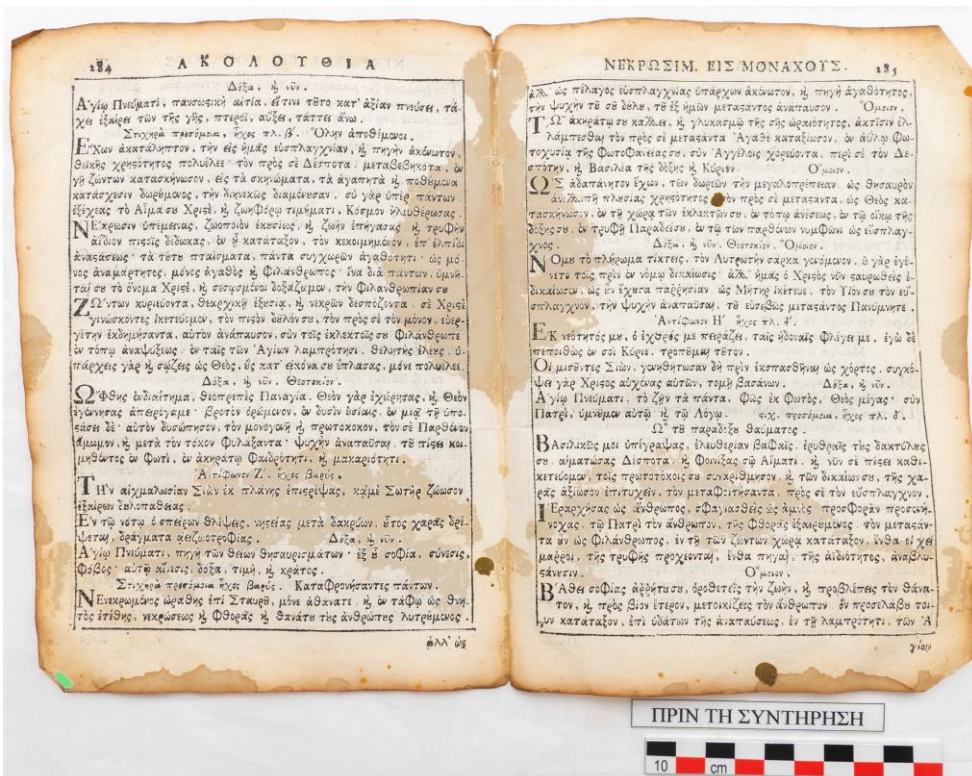 184 ΑΚΟΛΟΥΘΙΑ
Δόξα, ϗ νῦν.
Ἁγίῳ Πνεύματι, πανσωστικὴ αἰτία, εἴ τινι τȣ͂το κατ' ἀξίαν πνεύσει, τά-
χει ἐξαίρει τῶν τῆς γῆς, πτεροῖ, αὔξει, τάττει ἄνω.
Στιχηρὰ προσόμοια, ἦχος πλ. β'. Ὅλην ἀποθέμενοι.
ἜΧων ἀκατάληπτον, τὴν εἰς ἡμᾶς εὐσπλαγχνίαν, ϗ πηγὴν ἀκένωτον,
θεϊκῆς χρηστότητος πολυέλεε· τὸν πρὸς σὲ Δέσποτα, μεταβεβηκότα, ἐν
γῇ ζώντων κατασκήνωσον, εἰς τὰ σκηνώματα, τὰ ἀγαπητὰ ϗ ποθȣ́μενα
κατάσχεσιν δωρȣ́μενος, τὴν διηνεκῶς διαμένȣσαν· σὺ γὰρ ὑπὲρ πάντων
ἐξέχεας τὸ Αἷμά σȣ Χριστὲ, ϗ ζωηφόρῳ τιμήματι, Κόσμον ἠλευθέρωσας.
ΝΈκρωσιν ὑπέμεινας, ζωοποιὸν ἑκȣσίως, ϗ ζωὴν ἐπήγασας ϗ τρυφὴν
ἀΐδιον πιστοῖς δέδωκας, ἐν ᾗ κατάταξον, τὸν κεκοιμημένον, ἐπ' ἐλπίδι
ἀναστάσεως· τὰ τȣ́τȣ πταίσματα, πάντα συγχωρῶν ἀγαθότητι· ὡς μό-
νος ἀναμάρτητος, μόνος ἀγαθὸς ϗ Φιλάνθρωπος· ἵνα διὰ πάντων, ὑμνῆ-
ταί σȣ τὸ ὄνομα Χριστὲ, ϗ σεσωσμένοι δοξάζωμεν, τὴν Φιλανθρωπίαν σȣ
ΖΏντων κυριεύοντα, θεαρχικῇ ἐξȣσίᾳ, ϗ νεκρῶν δεσπόζοντα, σὲ Χριστὲ
γινώσκοντες ἱκετεύομεν, τὸν πιστὸν δȣ͂λόν σȣ, τὸν πρὸς σὲ τὸν μόνον, εὐερ-
γέτην ἐκδημήσαντα, αὐτὸν ἀνάπαυσον, σὺν τοῖς ἐκλεκτοῖς σȣ Φιλάνθρωπε
ἐν τόπῳ ἀναψύξεως· ἐν ταῖς τῶν Ἁγίων λαμπρότησι· θελητὴς ἐλέȣς, ὑ-
πάρχεις γὰρ ϗ σώζεις ὡς Θεὸς, ȣ̔̀ς κατ' εἰκόνα σȣ ἔπλασας, μόνε πολυέλεε.
Δόξα, ϗ νῦν. Θεοτοκίον.
ὬΦθης ἐνδιαίτημα, θεοπρεπὲς Παναγία· Θεὸν γὰρ ἐχώρησας, ϗ Θεὸν
ἐγέννησας ἀπειρόγαμε· βροτὸν ὁρώμενον, ἐν δυσὶν ȣ̓σίαις, ἐν μιᾷ τῇ ὑπο-
στάσει δέ· αὐτὸν δυσώπησον, τὸν μονογενῆ ϗ πρωτότοκον, τὸν σὲ Παρθένον
ἄμωμον, ϗ μετὰ τὸν τόκον Φυλάξαντα· ψυχὴν ἀναπαῦσαι, τȣ͂ πίστει κοι-
μηθέντος ἐν Φωτὶ, ἐν ἀκηράτῳ Φαιδρότητι, ϗ μακαριότητι.
Ἀντίφωνον Ζ'. ἦχος βαρύς.
ΤΗν αἰχμαλωσίαν Σιὼν ἐκ πλάνης ἐπιστρέψας, κᾀμὲ Σωτὴρ ζώωσον
ἐξαίρων δȣλοπαθείας.
Ἐν τῷ νότῳ ὁ σπείρων θλίψεις, νηστείας μετὰ δακρύων, ȣ̔͂τος χαρᾶς δρέ-
ψεται, δράγματα ἀειζωοτροφίας. Δόξα, ϗ νῦν.
Ἁγίῳ Πνεύματι, πηγὴ τῶν θείων θησαυρισμάτων· ἐξ ȣ̔͂ σοφία, σύνεσις,
Φόβος· αὐτῷ αἴνεσις, δόξα, τιμὴ, ϗ κράτος.
Στιχηρὰ προσόμοια ἦχος βαρύς. Καταφρονήσαντες πάντων.
ΝΕνεκρωμένος ὡράθης ἐπὶ Σταυρȣ͂, μόνε ἀθάνατε, ϗ ἐν τάφῳ ὡς θνη-
τὸς ἐτέθης, νεκρώσεως ϗ Φθορᾶς ϗ θανάτȣ τȣ̀ς ἀνθρώπȣς λυτρȣ́μενος.
ἀλλ' ὡς
ΝΕΚΡΩΣΙΜ. ΕΙΣ ΜΟΝΑΧΟΥΣ. 185
ἀλλ' ὡς πέλαγος εὐσπλαγχνίας ὑπάρχων ἀκένωτον, ϗ πηγὴ ἀγαθότητος,
τὴν ψυχὴν τȣ͂ σȣ͂ δȣ́λȣ, τȣ͂ ἐξ ἡμῶν μεταστάντος ἀνάπαυσον. Ὅμοιον.
ΤΩ͂ ἀκηράτῳ σȣ κάλλει, ϗ γλυκασμῷ τῆς σῆς ὡραιότητος, ἀκτῖσίν ἐλ-
λάμπεσθαι τὸν πρὸς σὲ μεταστάντα Ἀγαθὲ καταξίωσον, ἐν ἀΰλῳ Φω-
τοχυσίᾳ τῆς Φωτοφανείας σȣ, σὺν Ἀγγέλοις χορεύοντα, περὶ σὲ τὸν Δε-
σπότην, ϗ Βασιλέα τῆς δόξης ϗ Κύριον. Ὅμοιον.
ὩΣ ἀδαπάνητον ἔχων, τῶν δωρεῶν τὴν μεγαλοπρέπειαν, ὡς θησαυρὸν
ἀνελλιπῆ πλȣσίας χρηστότητος, τὸν πρὸς σὲ μεταστάντα, ὡς Θεὸς κα-
τασκήνωσον, ἐν τῇ χώρᾳ τῶν ἐκλεκτῶν σȣ, ἐν τόπῳ ἀνέσεως, ἐν τῷ οἴκῳ τῆς
δόξης σȣ, ἐν τρυφῇ Παραδείσȣ, ἐν τῷ τῶν παρθένων νυμφῶνι ὡς εὔσπλαγ-
χνος. Δόξα, ϗ νῦν. Θεοτοκίον. Ὅμοιον.
ΝΌμȣ τὸ πλήρωμα τίκτεις, τὸν Λυτρωτὴν σάρκα γενόμενον, ȣ̓ γὰρ ἐγέ-
νετο τοῖς πρὶν ἐν νόμῳ δικαίωσις· ἀλλ' ἡμᾶς ὁ Χριστὸς νῦν σταυρωθεὶς ἐ-
δικαίωσεν, ὡς ȣ̓͂ν ἔχȣσα παῤῥησίαν, ὡς Μήτηρ ἱκέτευε, τὸν Υἱόν σȣ τὸν εὔ-
σπλαγχνον, τὴν ψυχὴν ἀναπαῦσαι, τȣ͂ εὐσεβῶς μεταστάντος Πανύμνητε.
Ἀντίφωνον Η' ἦχος πλ. δ'.
ἘΚ νεότητός μȣ, ὁ ἐχθρός με πειράζει, ταῖς ἡδοναῖς Φλέγει με. ἐγὼ δὲ
πεποιθὼς ἐν σοὶ Κύριε, τροπȣ͂μαι τȣ͂τον.
Οἱ μισοῦντες Σιὼν, γενηθήτωσαν δὴ πρὶν ἐκσπασθῆναι ὡς χόρτος, συγκό-
ψει γὰρ Χριστὸς αὐχένας αὐτῶν, τομῇ βασάνων. Δόξα, ϗ νῦν.
Ἁγίῳ Πνεύματι, τὸ ζῇν τὰ πάντα. Φῶς ἐκ Φωτὸς, Θεὸς μέγας· σὺν
Πατρὶ, ὑμνȣ͂μεν αὐτῷ ϗ τῷ Λόγῳ. στιχ. προσόμοια, ἦχος πλ. δ'.
Ὢ τȣ͂ παραδόξȣ θαύματος.
ΒΑσιλικῶς μοι ὑπέγραψας, ἐλευθερίαν βαφαῖς, ἐρυθραῖς τȣ̀ς δακτύλȣς
σȣ, αἱματώσας Δέσποτα, ϗ Φοινίξας σῷ Αἵματι. ϗ νῦν σὲ πίστει καθι-
κετεύομεν, τοῖς πρωτοτόκοις σȣ συναρίθμησον, ϗ τῶν δικαίων σȣ, τῆς χα-
ρᾶς ἀξίωσον ἐπιτυχεῖν, τὸν μεταφοιτήσαντα, πρὸς σὲ τὸν εὔσπλαγχνον.
ἹΕραρχήσας ὡς ἄνθρωπος, σφαγιασθεὶς ὡς ἀμνὸς προσφορὰν προσενή-
νοχας, τῷ Πατρὶ τὸν ἄνθρωπον, τῆς Φθορᾶς ἐξαιρȣ́μενος. τὸν μεταστάν-
τα ȣ̓͂ν ὡς Φιλάνθρωπος, ἐν τῇ τῶν ζώντων χώρᾳ κατάταξον, ἔνθα οἱ χεί
μαῤῥοι, τῆς τρυφῆς προχέονται, ἔνθα πηγαὶ, τῆς ἀϊδιότητος, ἀναβλυ-
στάνȣσιν. Ὅμοιον.
ΒΆθει σοφίας ἀῤῥήτȣ σȣ, ὁροθετεῖς τὴν ζωὴν, ϗ προβλέπεις τὸν θάνα-
τον, ϗ πρὸς βίον ἕτερον, μετοικίζεις τὸν ἄνθρωπον. ὃν προσελάβȣ τοί-
νυν κατάταξον, ἐπὶ ὑδάτων τῆς ἀναπαύσεως, ἐν τῇ λαμπρότητι, τῶν Ἁ
γίων
ΠΡΙΝ ΤΗ ΣΥΝΤΗΡΗΣΗ
10 cm